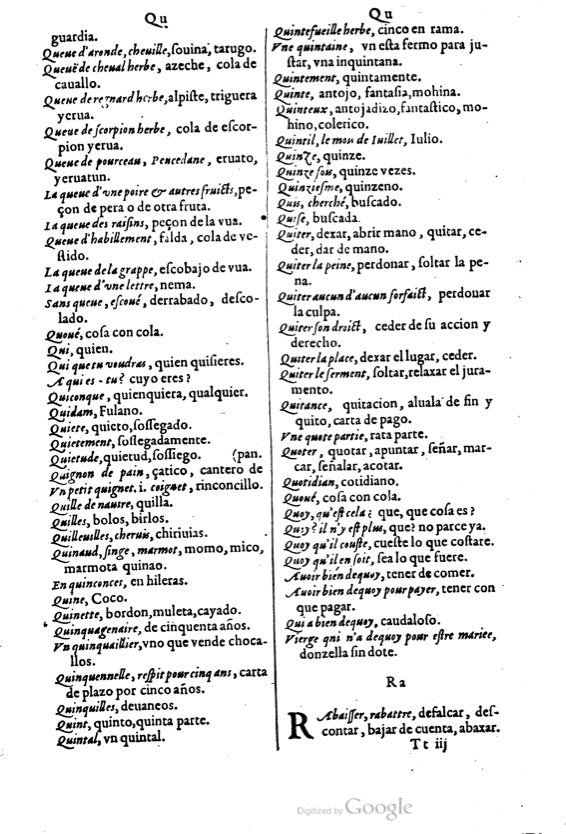 Qu
guardia.
Queue d'aronde, cheuille, souina, tarugo.
Queuë de cheual herbe, azeche, cola de
cauallo.
Queue de regnard herbe, alpiste, triguera
yerua.
Queue de scorpion herbe, cola de escor-
pion yerua.
Queue de pourceau, Peucedane, eruato,
yeruatun.
La queue d'vne poire & autres fruicts, pe-
çon de pera o de otra fruta.
La queue des raisins, peçon de la vua.
Queue d'habillement, falda, cola de ve-
stido.
La queue de la grappe, escobajo de vua.
La queue d'vne lettre, nema.
Sans queue, escoué, derrabado, desco-
lado.
Quoué, cosa con cola.
Qui, quien.
Qui que tu voudras, quien quisieres.
A qui es-tu? cuyo eres?
Quiconque, quienquiera, qualquier.
Quidam, Fulano.
Quiete, quieto, sossegado.
Quietement, sossegadamente.
Quietude, quietud, sossiego. (pan.
Quignon de pain, çatico, cantero de
Vn petit quignet. i. coignet, rinconcillo.
Quille de nauire, quilla.
Quilles, bolos, birlos.
Quilleuilles, cheruis, chiriuias.
Quinaud, singe, marmot, momo, mico,
marmota quinao.
En quinconces, en hileras.
Quine, Coco.
Quinette, bordon, muleta, cayado.
Quinquagenaire, de cinquenta años.
Vn quinquaillier, vno que vende choca-
llos.
Quinquennelle, respit pour cinq ans, carta
de plazo por cinco años.
Quinquilles, deuaneos.
Quint, quinto, quinta parte.
Quintal, vn quintal.
Qu
Quintefueille herbe, cinco en rama.
Vne quintaine, vn esta fermo para ju-
star, vna inquintana.
Quintement, quintamente.
Quinte, antojo, fantasia, mohina.
Quinteux, antojadizo, fantastico, mo-
hino, colerico.
Quintil, le mou de Iuillet, Iulio.
Quinze, quinze.
Quinze fou, quinze vezes.
Quinziesme, quinzeno.
Quis, cherché, buscado.
Quise, buscada.
Quiter, dexar, abrir mano, quitar, ce-
der, dar de mano.
Quiter la peine, perdonar, soltar la pe-
na.
Quiter aucun d'aucun forfaict, perdouar
la culpa.
Quiter son droict, ceder de su accion y
derecho.
Quiter la place, dexar el lugar, ceder.
Quiter le serment, soltar, relaxar el jura-
mento.
Quitance, quitacion, aluala de fin y
quito, carta de pago.
Vne quote partie, rata parte.
Quoter, quotar, apuntar, señar, mar-
car, señalar, acotar.
Quotidian, cotidiano.
Quoué, cosa con cola.
Quoy, qu'est cela? que, que cosa es?
Quoy? il n'y est plus, que? no parce ya.
Quoy qu'il couste, cueste lo que costare.
Quoy qu'il en soit, sea lo que fuere.
Auoir bien dequoy, tener de comer.
Auoir bien dequoy pour payer, tener con
que pagar.
Qui a bien dequoy, caudaloso.
Vierge qui n'a dequoy pour estre mariée,
donzella sin dote.
Ra
RAbaisser, rabattre, defalcar, des-
contar, bajar de cuenta, abaxar.
Tt iij
Digitized by Google